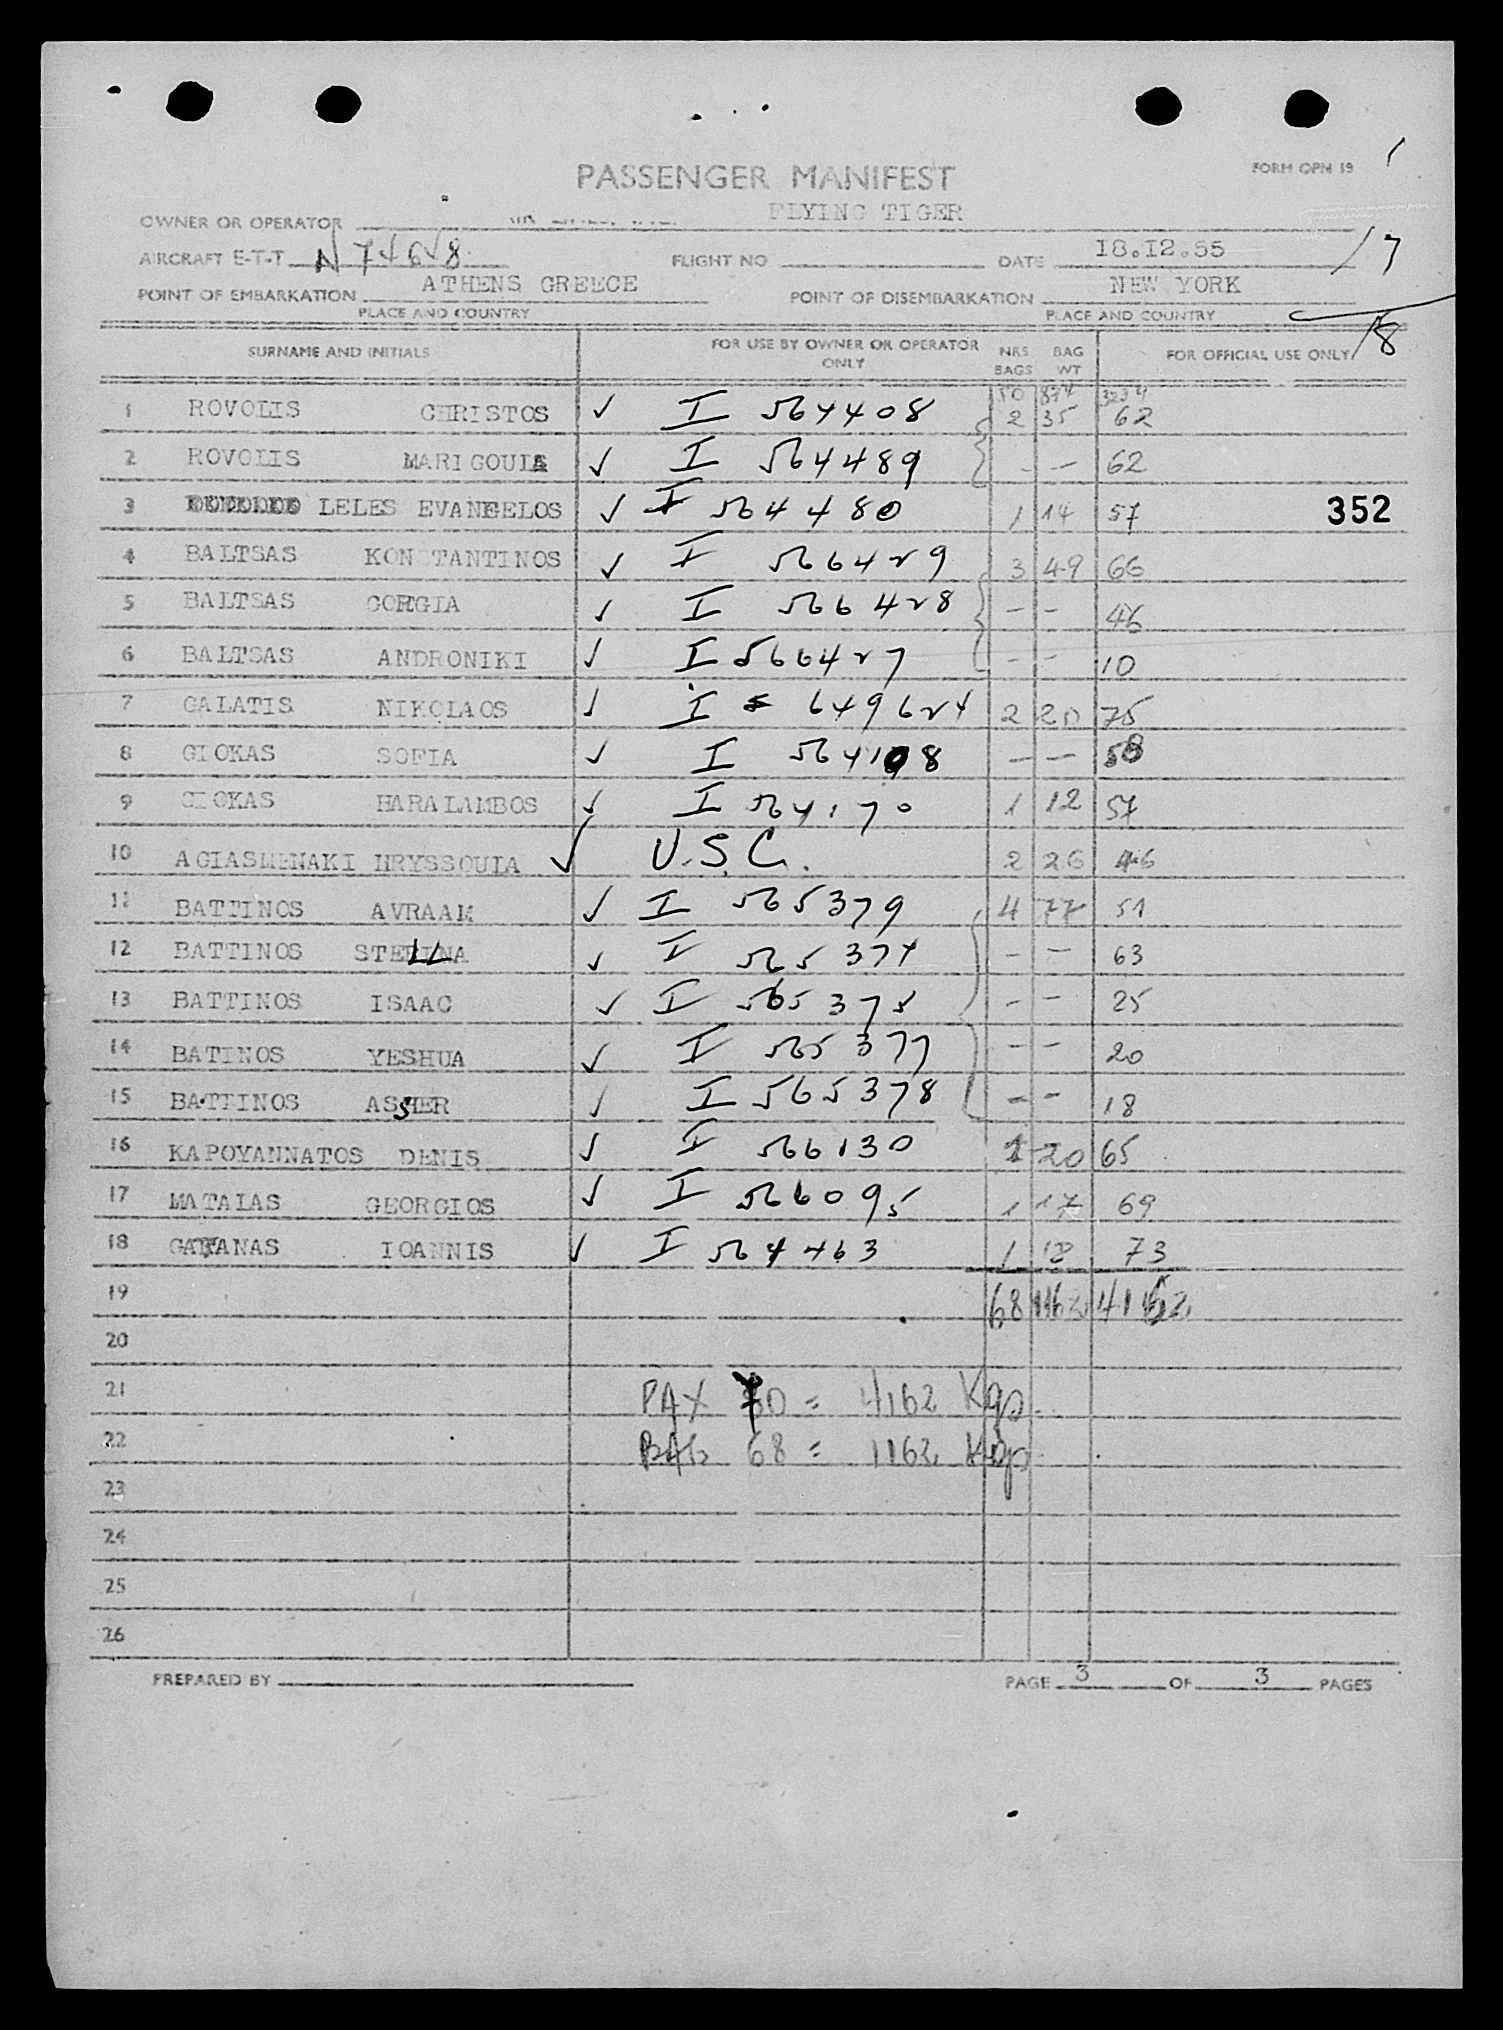 PASSENGER MANIFEST
FORM OPN 19
OWNER OR OPERATOR FLYING TIGER
AIRCRAFT E-T-T N 74648 FLIGHT NO DATE 18.12.55 17
POINT OF EMBARKATION ATHENS GREECE POINT OF DISEMBARKATION NEW YORK
PLACE AND COUNTRY PLACE AND COUNTRY
18
SURNAME AND INITIALS FOR USE BY OWNER OR OPERATOR ONLY NRS BAGS BAG WT FOR OFFICIAL USE ONLY
50 874 3234
1 ROVOLIS CHRISTOS ✓ I 564408 2 35 62
2 ROVOLIS MARIGOULA ✓ I 564489 - — 62
3 LELES EVANGELOS ✓ I 564480 1 14 57 352
4 BALTSAS KONSTANTINOS ✓ I 566429 3 49 66
5 BALTSAS GORGIA ✓ I 566428 - - 46
6 BALTSAS ANDRONIKI ✓ I 566427 - - 10
7 GALATIS NIKOLAOS ✓ I 649624 2 20 75
8 GIOKAS SOFIA ✓ I — — 58
9 GIOKAS HARALAMBOS ✓ I 564170 1 12 57
10 AGIASMENAKI HRYSSOULA ✓ U.S.C. 2 26 46
11 BATTINOS AVRAAM ✓ I 565379 4 77 51
12 BATTINOS STELLA ✓ I 565374 - - 63
13 BATTINOS ISAAC ✓ I 565375 - - 25
14 BATINOS YESHUA ✓ I 565377 - - 20
15 BATTINOS ASSHER ✓ I 565378 - - 18
16 KAPOYANNATOS DENIS ✓ I 566130 1 20 65
17 MATALAS GEORGIOS ✓ I 566095 1 17 69
18 GATANAS IOANNIS ✓ I 564463 1 12 73
19 68 1162 4162
20
21 PAX 80 = 4162 Kgs.
22 BAG 68 = 1162 Kgs.
23
24
25
26
PREPARED BY PAGE 3 OF 3 PAGES